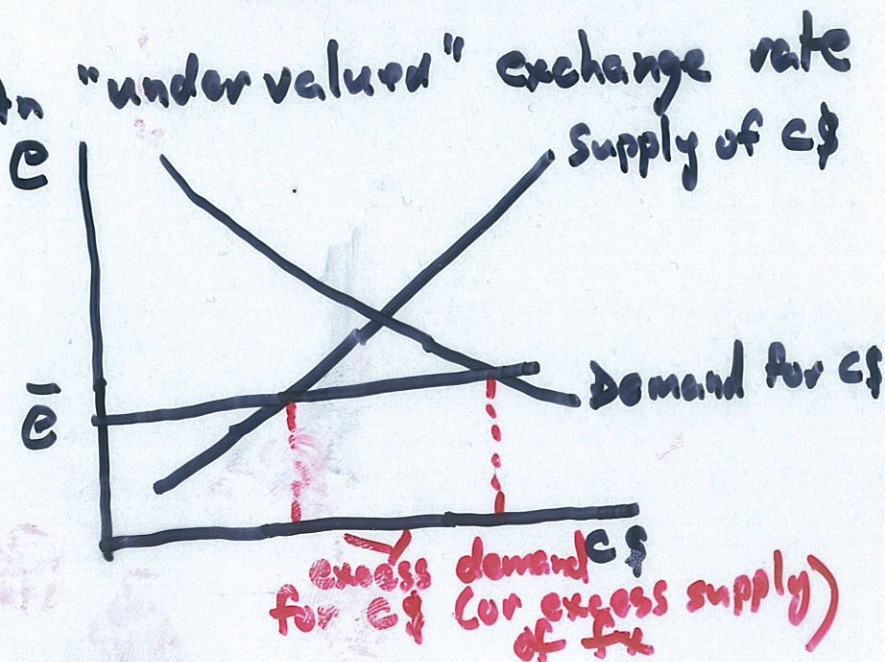 An "undervalued" exchange rate
e
Supply of C$
Demand for C$
ē
C$
excess demand
for C$ (or excess supply)
of fx